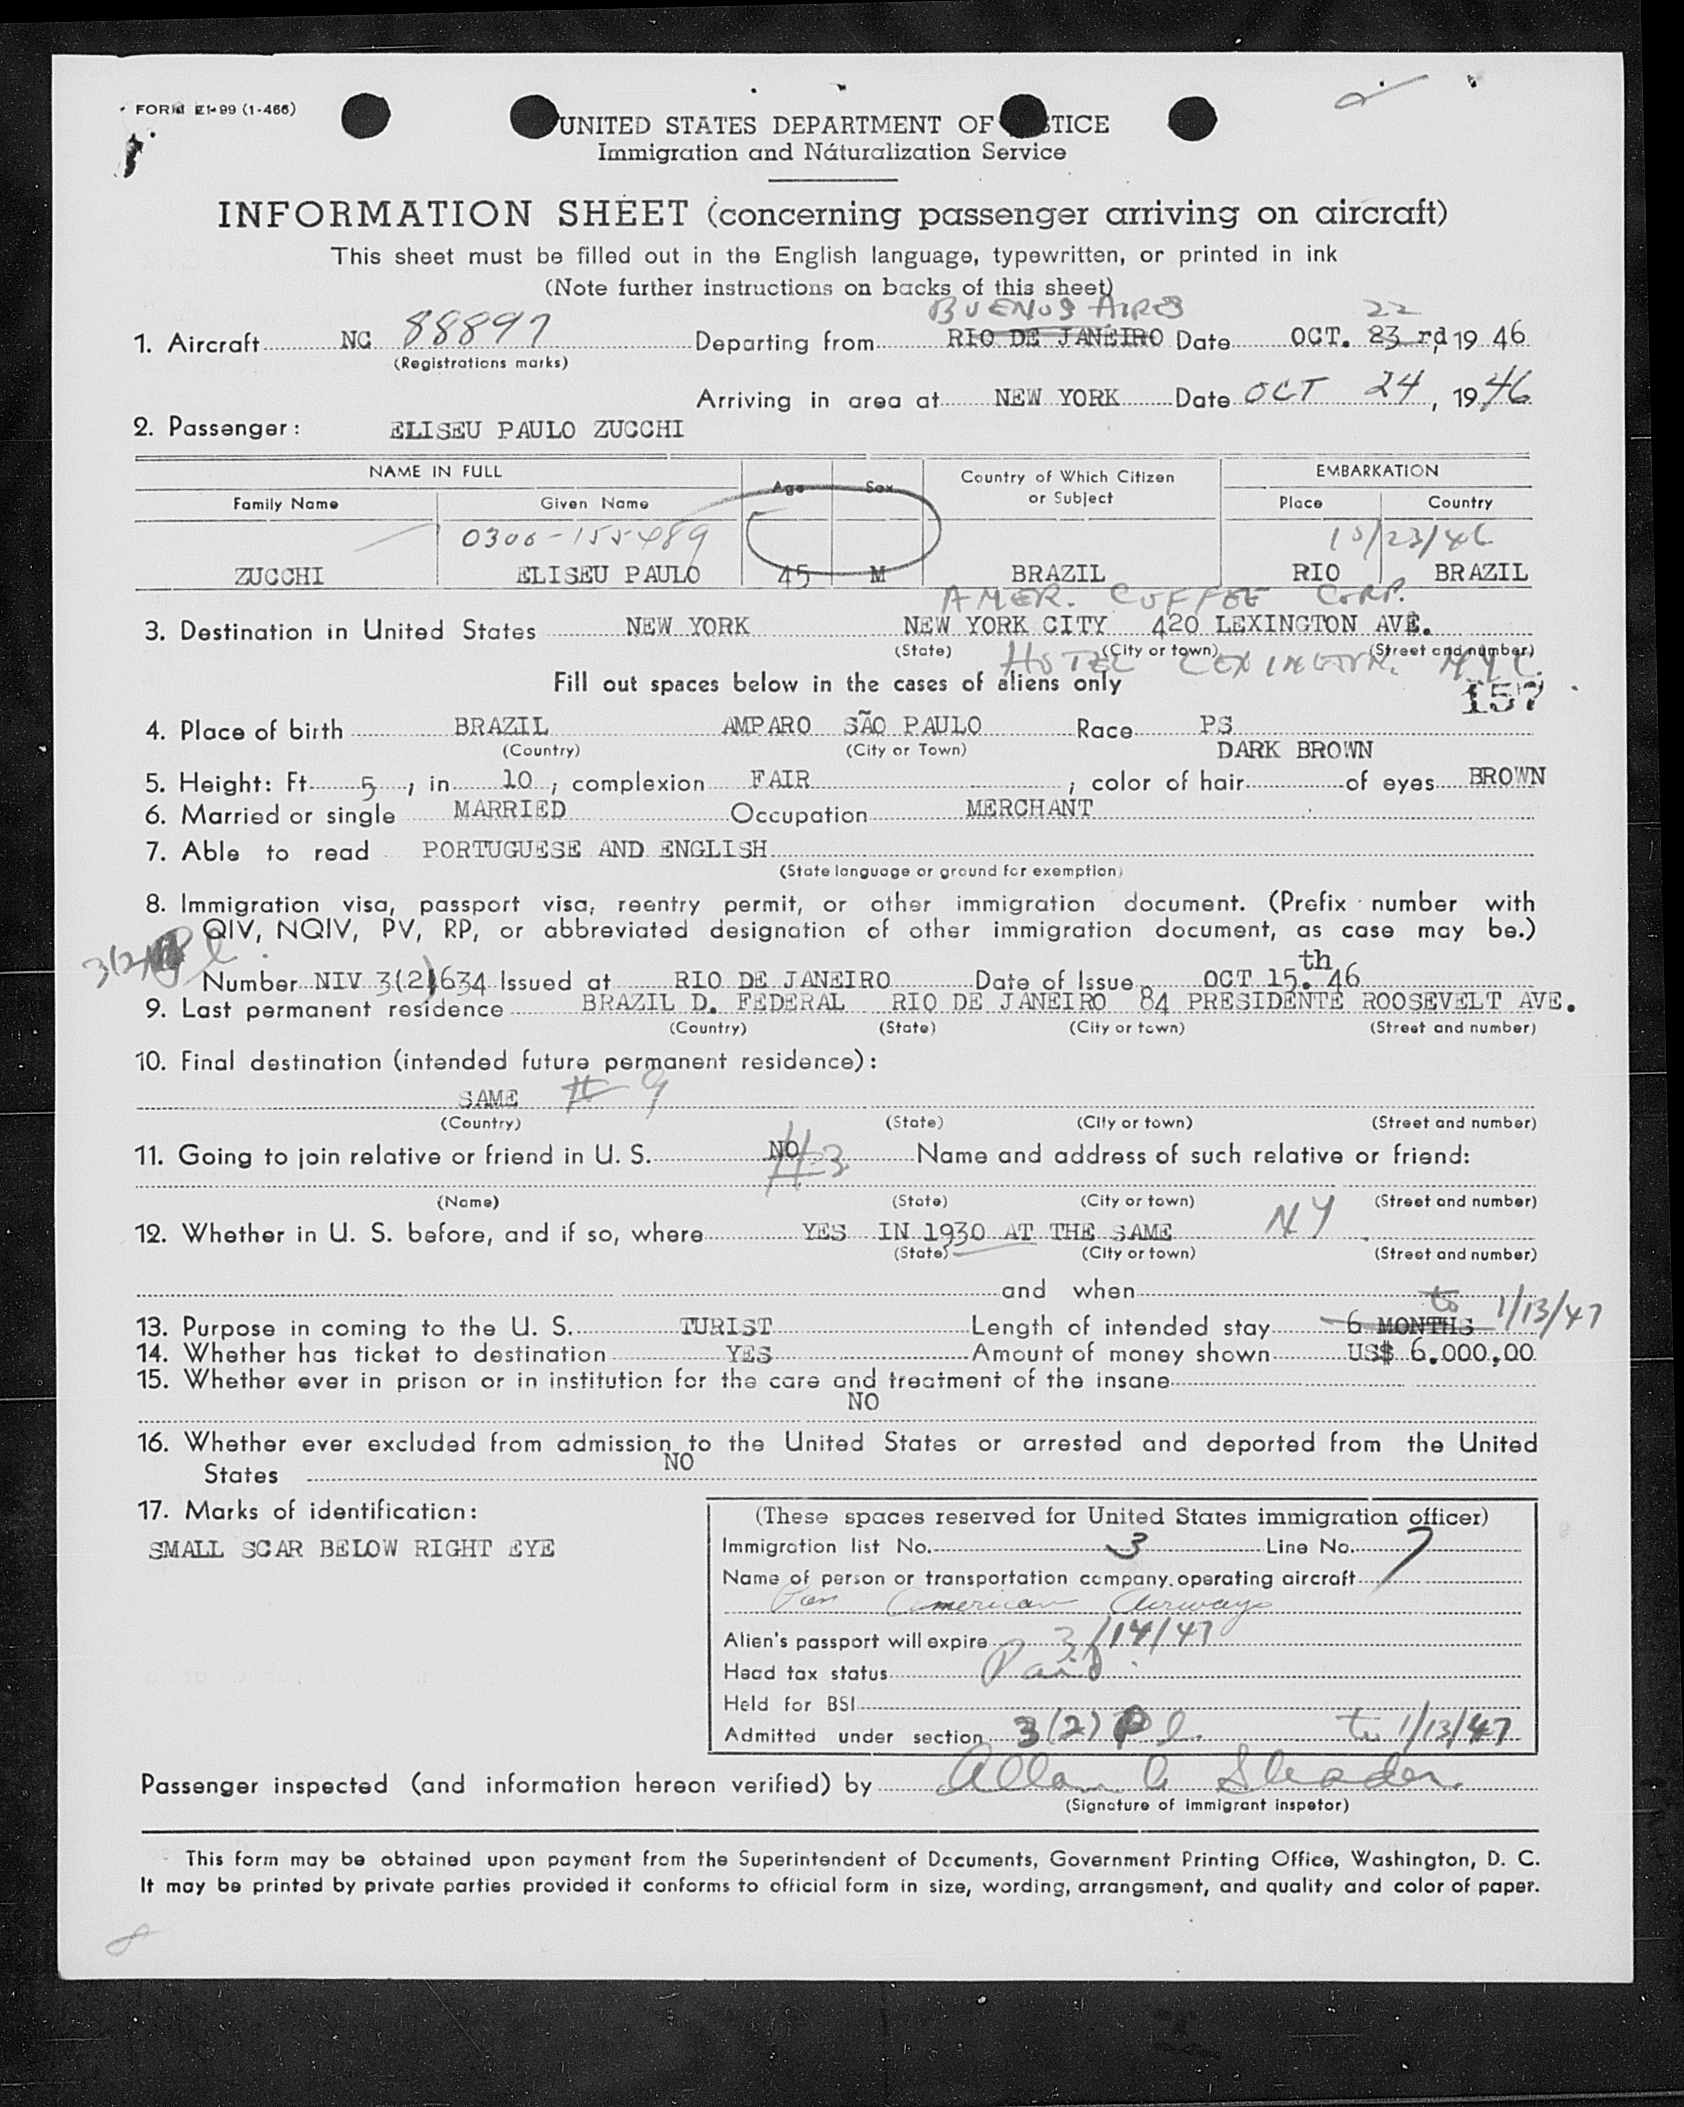 FORM I-99 (1-466)
UNITED STATES DEPARTMENT OF JUSTICE
Immigration and Naturalization Service
INFORMATION SHEET (concerning passenger arriving on aircraft)
This sheet must be filled out in the English language, typewritten, or printed in ink
(Note further instructions on backs of this sheet)
BUENOS AIRES 22
1. Aircraft NC 88897 Departing from RIO DE JANEIRO Date OCT. 23 rd, 19 46
(Registrations marks)
Arriving in area at NEW YORK Date OCT 24, 19 46
2. Passenger: ELISEU PAULO ZUCCHI
NAME IN FULL Age Sex Country of Which Citizen or Subject EMBARKATION
Family Name Given Name Place Country
0300-155489 10/23/46
ZUCCHI ELISEU PAULO 45 M BRAZIL RIO BRAZIL
AMER. COFFEE CORP.
3. Destination in United States NEW YORK NEW YORK CITY 420 LEXINGTON AVE.
(State) (City or town) (Street and number)
HOTEL LEXINGTON. NYC.
Fill out spaces below in the cases of aliens only
157
4. Place of birth BRAZIL AMPARO SÃO PAULO Race PS
(Country) (City or Town) DARK BROWN
5. Height: Ft. 5, in 10; complexion FAIR; color of hair of eyes BROWN
6. Married or single MARRIED Occupation MERCHANT
7. Able to read PORTUGUESE AND ENGLISH
(State language or ground for exemption)
8. Immigration visa, passport visa, reentry permit, or other immigration document. (Prefix number with
QIV, NQIV, PV, RP, or abbreviated designation of other immigration document, as case may be.)
3(2)
Number NIV 3(2)634 Issued at RIO DE JANEIRO Date of Issue OCT 15.th 46
9. Last permanent residence BRAZIL D. FEDERAL RIO DE JANEIRO 84 PRESIDENTE ROOSEVELT AVE.
(Country) (State) (City or town) (Street and number)
10. Final destination (intended future permanent residence):
SAME # 9
(Country) (State) (City or town) (Street and number)
11. Going to join relative or friend in U. S. NO #3 Name and address of such relative or friend:
(Name) (State) (City or town) (Street and number)
12. Whether in U. S. before, and if so, where YES IN 1930 AT THE SAME NY
(State) (City or town) (Street and number)
and when
13. Purpose in coming to the U. S. TURIST Length of intended stay 6 MONTHS to 1/13/47
14. Whether has ticket to destination YES Amount of money shown US$ 6.000,00
15. Whether ever in prison or in institution for the care and treatment of the insane
NO
16. Whether ever excluded from admission to the United States or arrested and deported from the United
States NO
17. Marks of identification:
SMALL SCAR BELOW RIGHT EYE
(These spaces reserved for United States immigration officer)
Immigration list No. 3 Line No. 7
Name of person or transportation company operating aircraft
Pan American Airways
Alien's passport will expire 3/14/47
Head tax status Paid.
Held for BSI
Admitted under section 3(2) Pl. to 1/13/47
Passenger inspected (and information hereon verified) by Allan
(Signature of immigrant inspetor)
This form may be obtained upon payment from the Superintendent of Documents, Government Printing Office, Washington, D. C.
It may be printed by private parties provided it conforms to official form in size, wording, arrangement, and quality and color of paper.